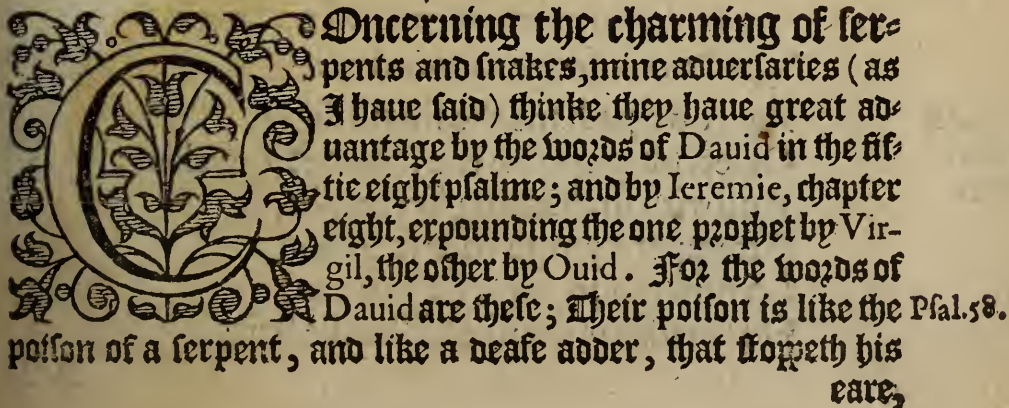 COncerning the charming of ſer=
pents and ſnakes, mine aduerſaries (as
I haue ſaid) thinke they haue great ad=
uantage by the words of Dauid in the fif=
tie eight pſalme; and by Ieremie, chapter
eight, expounding the one prophet by Vir-
gil, the other by Ouid. For the words of
Dauid are theſe; Their poiſon is like the Pſal.58.
poiſon of a ſerpent, and like a deafe adder, that ſtoppeth his
eare,